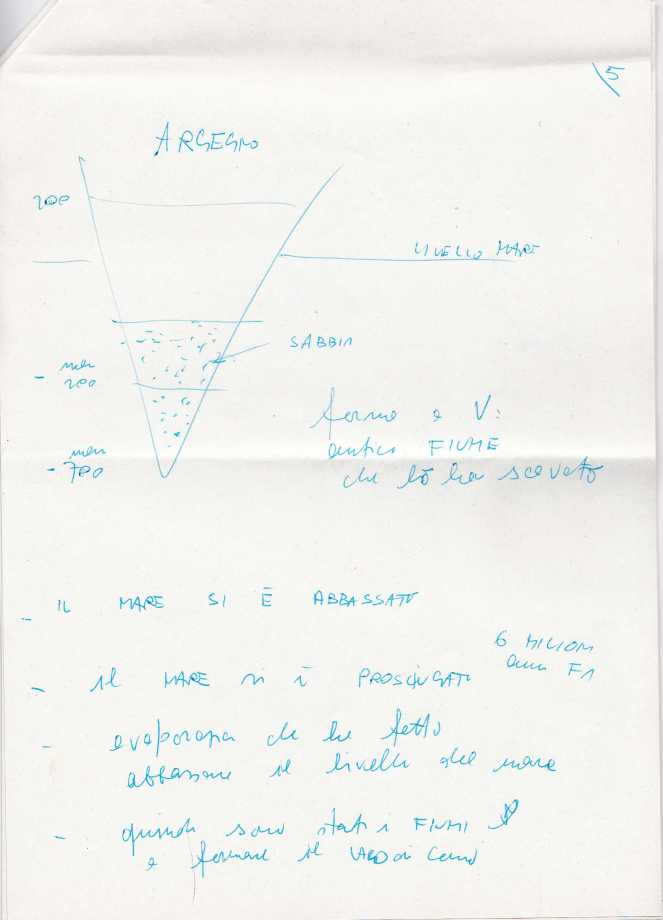 5
ARGEGNO
200
LIVELLO MARE
SABBIA
- men
200
forma a V:
antico FIUME
che lo ha scavato
- men
700
- IL MARE SI È ABBASSATO
6 MILIONI
anni FA
- il MARE si è PROSCIUGATO
- che ha fatto
abbassare il livello del mare
- quindi sono stati i FIUMI
a formare il LAGO di Como